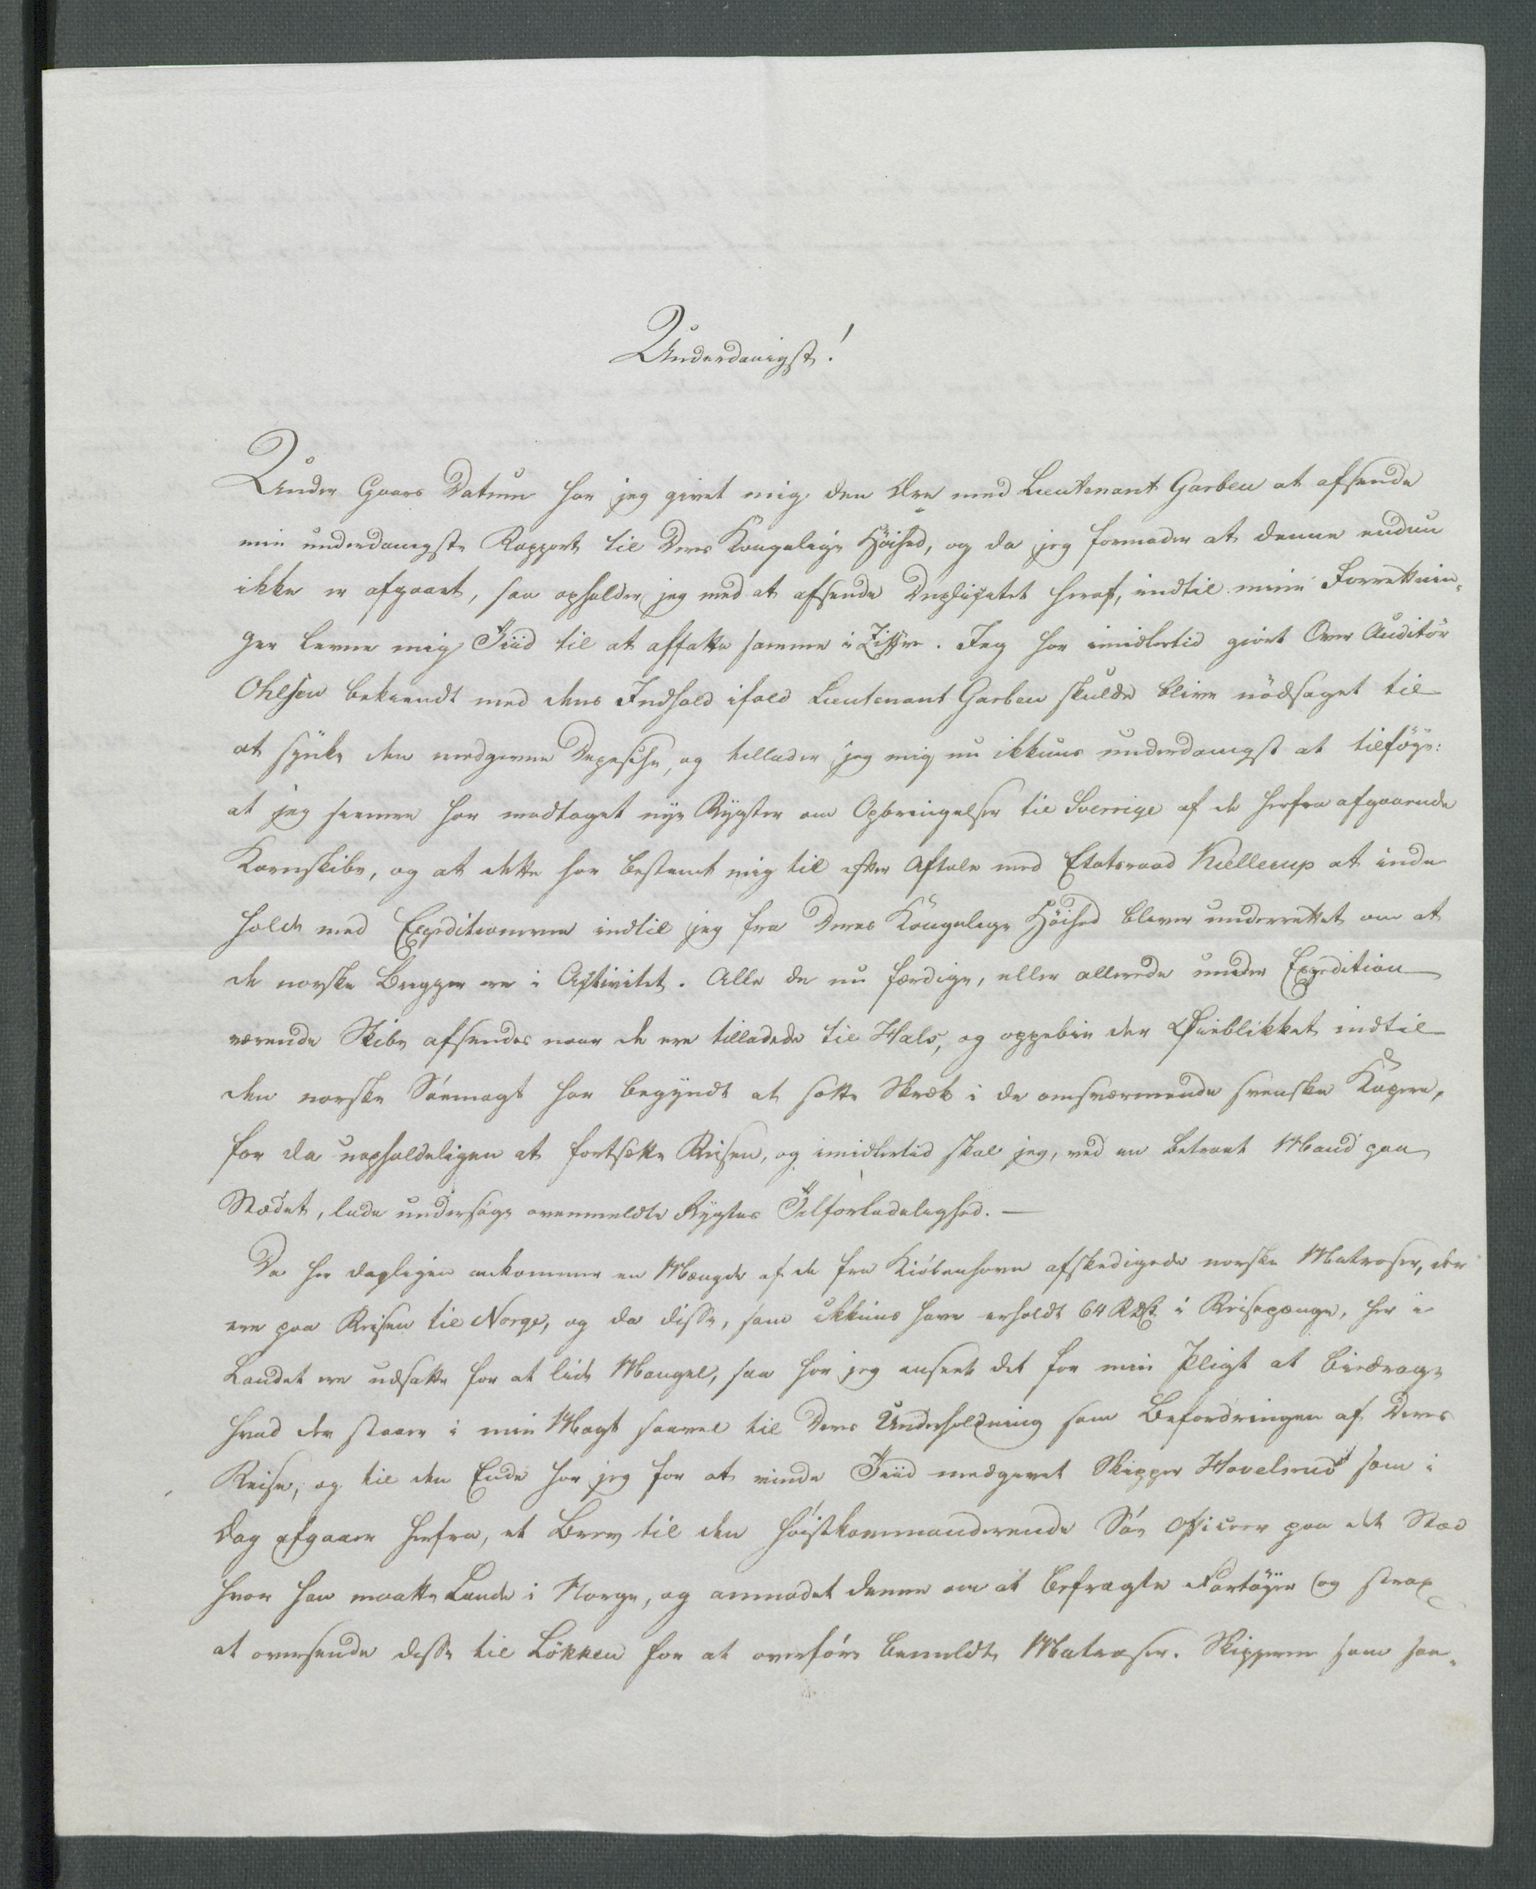 Underdanigst!
Under Gaars Datum har jeg givet mig den Ære med Lieutenant Garben at afsende
min underdanigste Rapport til Deres Kongelige Höihed, og da jeg formoder at denne endnu
ikke er afgaaet, saa opholder jeg med at afsende Duplicatet heraf, indtil mine Forretnin-
ger levne mig Tiid til at affatte samme i Ziffre. Jeg har imidlertid giört Over Auditör
Ohlsen bekiendt med dens Indhold ifald Lieutenant Garben skulde blive nödsaget til
at synke den medgivne Depesche, og tillader jeg mig nu ikkuns underdanigst at tilföye:
at jeg har modtaget nye Rygter om Opbringelser til Sverrige af de herfra afgaaende
Kornskibe, og at dette har bestemt mig til efter Aftale med Etatsraad Kiellerup at inde
holde med Expeditionerne indtil jeg fra Deres Kongelige Höihed bliver underrettet om at
de norske Brigger ere i Activitet. Alle de nu færdige, eller allerede under Expedition
værende Skibe afsendes naar de ere tilladede til Hals, og oppebie der Öieblikket indtil
den norske Söemagt har begyndt at sætte Skræk i de omsværmende svenske Kapere,
for da uopholdeligen at fortsætte Reisen, og imidlertid skal jeg, ved en betroet Mand paa
Stædet, lade undersöge ovenmeldte Rygtes Tilforladelighed. —
Da her dagligen ankommer en Mængde af de fra Kiöbenhavn afskedigede norske Matroser, der
ere paa Reisen til Norge, og da disse, som ikkuns have erholdt 64 Rd. i Reisepenge, her i
Landet ere udsatte for at lide Mangel, saa har jeg anseet det for min Pligt at bidrage
hvad der staaer i min Magt saavel til Deres Underholdning som Befordringen af Deres
Reise, og til den Ende har jeg for at vinde Tiid medgivet Skipper Havelsrud som i
Dag afgaaer herfra, et Brev til den höistkommanderende Söe Officeer paa det Sted
hvor han maatte Lande i Norge, og anmodet denne om at befragte Fartöyer og strax
at oversende disse til Lökken for at overföre bemeldte Matroser. Skipperne som saa-